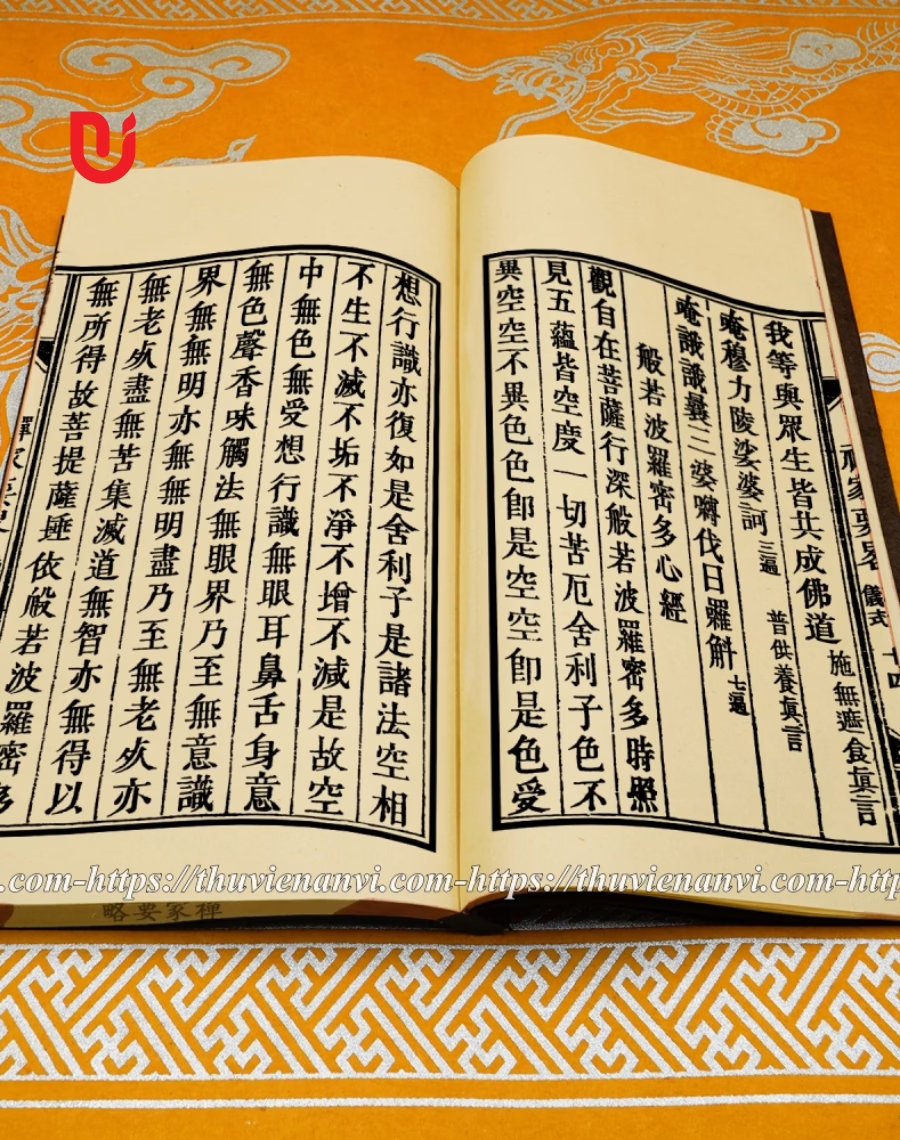 家要畧 儀式 十四
我等與眾生皆共成佛道 施無遮食眞言
唵穆力陵娑婆訶 三遍 普供養眞言
唵誐誐曩三婆嚩伐日羅斛 七遍
般若波羅密多心經
觀自在菩薩行深般若波羅密多時照
見五蘊皆空度一切苦厄舍利子色不
異空空不異色色卽是空空卽是色受
想行識亦復如是舍利子是諸法空相
不生不滅不垢不淨不增不減是故空
中無色無受想行識無眼耳鼻舌身意
無色聲香味觸法無眼界乃至無意識
界無無明亦無無明盡乃至無老死亦
無老死盡無苦集滅道無智亦無得以
無所得故菩提薩埵依般若波羅密多
.com-https://thuvienanvi.com-https://thuvienanvi.com-http
略要家禪